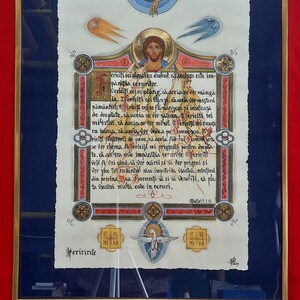 Fericiți cei săraci cu duhul, că acelora este îm-
părăția cerurilor.
Fericiți cei ce plâng, că aceia se vor mângâia.
Fericiți cei blânzi, că aceia vor moșteni
pământul. Fericiți cei ce flămânzesc și însetează
de dreptate, că aceia se vor sătura. Fericiți cei
milostivi, că aceia se vor milui. Fericiți cei curați
cu inima, că aceia vor vedea pe Dumnezeu. Fericiți
făcătorii de pace, că aceia fiii lui Dumnezeu
se vor chema. Fericiți cei prigoniți pentru drepta-
te, că a lor este împărăția cerurilor. Fericiți veți
fi când vă vor ocărî și vă vor prigoni și vor
zice tot cuvântul rău împotriva voastră, mințind
din pricina Mea. Bucurați-vă și vă veseliți, că pla-
ta voastră multă este în ceruri.
Fericirile
IC XC
NI KA
IC XC
NI KA